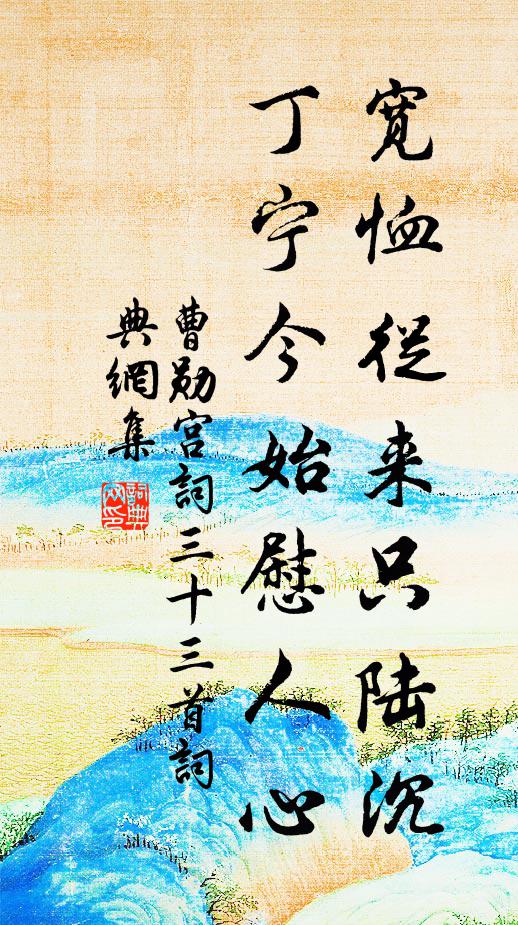 寬恤從来只陆沉
丁宁今始慰人心
曹勛宫詞三十三首詞
典網集
詞典
网印